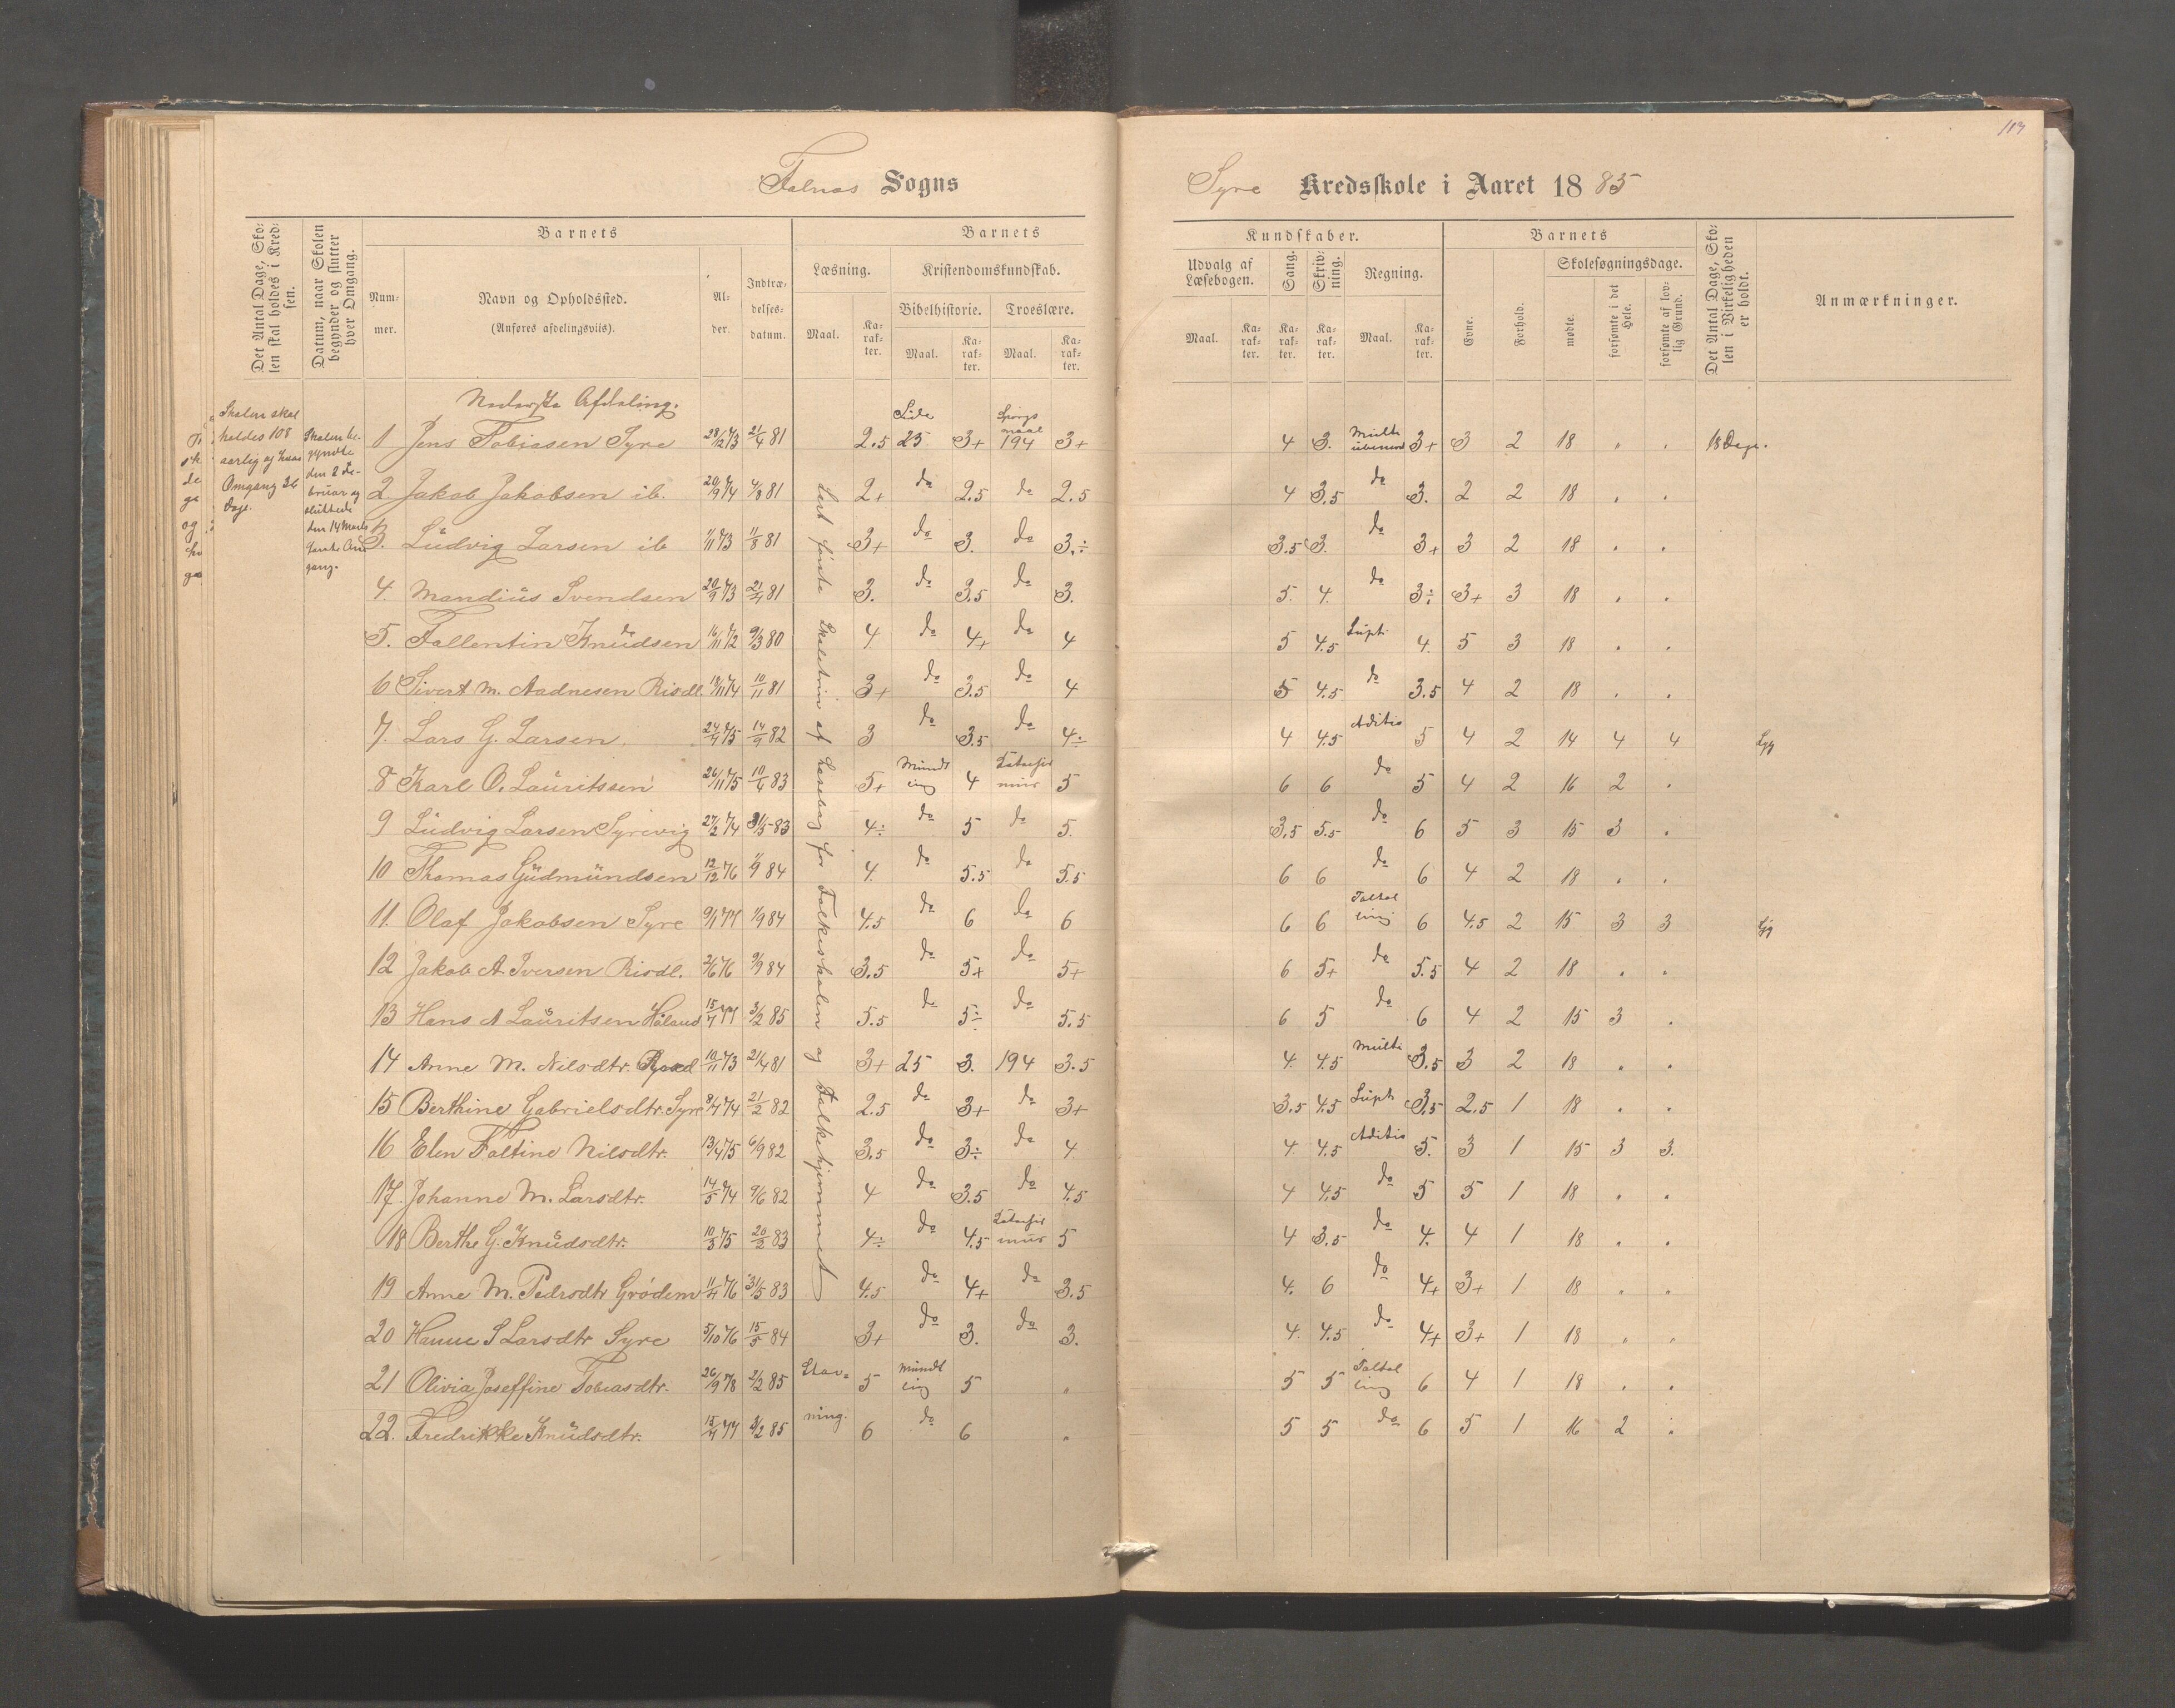 113
Falnæs Sogns
Syre Kredsskole i Aaret 1885
Det Antal Dage, Sko-
len skal holdes i Kred-
sen.
Datum, naar Skolen
begynder og slutter
hver Omgang.
Barnets
Num-
mer.
Navn og Opholdssted.
(Anføres afdelingsviis).
Al-
der.
Indtræ-
delses-
datum.
Barnets
Læsning.
Maal.
Ka-
rak-
ter.
Kristendomskundskab.
Bibelhistorie.
Maal.
Ka-
rak-
ter.
Troeslære.
Maal.
Ka-
rak-
ter.
Kundskaber.
Udvalg af
Læsebogen.
Maal.
Ka-
rak-
ter.
Sang.
Ka-
rak-
ter.
Skriv-
ning.
Ka-
rak-
ter.
Regning.
Maal.
Ka-
rak-
ter.
Barnets
Evne.
Forhold.
Skolesøgningsdage.
mødte.
forsømte i det
Hele.
forsømte af lov-
lig Grund.
Det Antal Dage, Sko-
len i Virkeligheden
er holdt.
Anmærkninger.
Skolen skal
holdes 108
aarlig og hver
Omgang 36
Dage.
Skolen be-
gyndte
den 2 Fe-
bruar og
sluttede
den 14 Marts
første Om
gang.
Nederste Afdeling.
Læst første Skoletrin af Læsebog for Folkeskolen og Folkehjemmet
1 Jens Tobiasen Syre 28/12 73 21/4 81 2.5 Side 25 3+ Spørgs maal 194 3+ 4 3. Multi 3+ 3 2 18 " . 18 Dage.
2 Jakob Jakobsen ib. 20/9 74 4/8 81 2+ do 2.5 do 2.5 4 3.5 do 3. 2 2 18 . .
3. Ludvig Larsen ib 1/11 73 11/8 81 3+ do 3. do 3.÷ 3.5 3. do 3+ 3 2 18 . .
4. Mandius Svendsen 20/9 73 21/4 81 3. do 3.5 do 3. 5. 4. do 3÷ 3+ 3 18 . .
5. Fallentin Knudsen 16/11 72 9/3 80 4 do 4+ do 4 5 4.5 Supt. 4. 5 3 18 . .
6 Sivert M. Aadnesen Risdl. 18/11 74 10/11 81 3+ do 3.5 do 4 5 4.5 do 3.5 4 2 18 . .
7. Lars G. Larsen 24/4 75 14/9 82 3 do 3.5 do 4÷ 4 4.5 Aditio 5 4 2 14 4 4 Syg
8 Karl O. Lauritssen 26/11 75 10/4 83 5+ Mundt ling 4 Katachis mus 5 6 6 do 5 4 2 16 2 .
9 Ludvig Larsen Syrevig 27/2 74 31/5 83 4÷ do 5 do 5. 3.5 5.5 do 6 5 3 15 3 .
10 Thomas Gudmundsen 12/12 76 1/9 84 4. do 5.5 do 5.5 6 6 do 6 4 2 18 . .
11. Olaf Jakobsen Syre 9/1 77 1/9 84 4.5 do 6 do 6 6 6 Taltal ling 6 4.5 2 15 3 3 Syg
12 Jakob A. Iversen Risdl. 2/6 76 9/9 84 3.5 do 5+ do 5+ 6 5+ do 5.5 4 2 18 . .
13 Hans A Lauritsen Håland 15/7 77 3/2 85 5.5 do 5÷ do 5.5 6 5 do 6 4 2 15 3 .
14 Anne M. Nilsdtr. 10/11 73 21/4 81 3+ 25 3. 194 3.5 4. 4.5 Multi 3.5 3 2 18 . .
15 Berthine Gabrielsdtr. Syre 8/7 74 21/2 82 2.5 do 3+ do 3+ 3.5 4.5 Supt. 3.5 2.5 1 18 . .
16 Elen Foltine Nilsdtr. 13/4 75 6/9 82 3.5 do 3÷ do 4 4. 4.5 Aditio 5. 3 1 15 3 3.
17. Johanne M. Larsdtr. 14/5 74 9/6 82 4 do 3.5 do 4.5 4 4.5 do 5 5 1 18 . .
18 Berthe G. Knudsdtr. 10/3 75 20/2 83 4÷ do 4.5 Katachis mus 5 4 3.5 do 4. 4 1 18 . .
19 Anne M. Pedrsdtr Grødem 11/4 76 31/5 83 4.5 do 4+ do 3.5 4. 6 do 4+ 3+ 1 18 " "
20 Hanne S Larsdtr Syre 5/10 76 15/5 84 3+ do 3. do 3. 4. 4.5 do 4+ 3+ 1 18 " "
21 Olivia Joseffine Tobiasdtr. 26/9 78 2/2 85 Stav= 5 mundt ling 5 " 5 5 Taltal ling 6 4 1 18 . .
22. Fredrikke Knudsdtr. 15/4 77 3/2 85 ning. 6 do 6 " 5 5 do 6 5 1 16 2 .